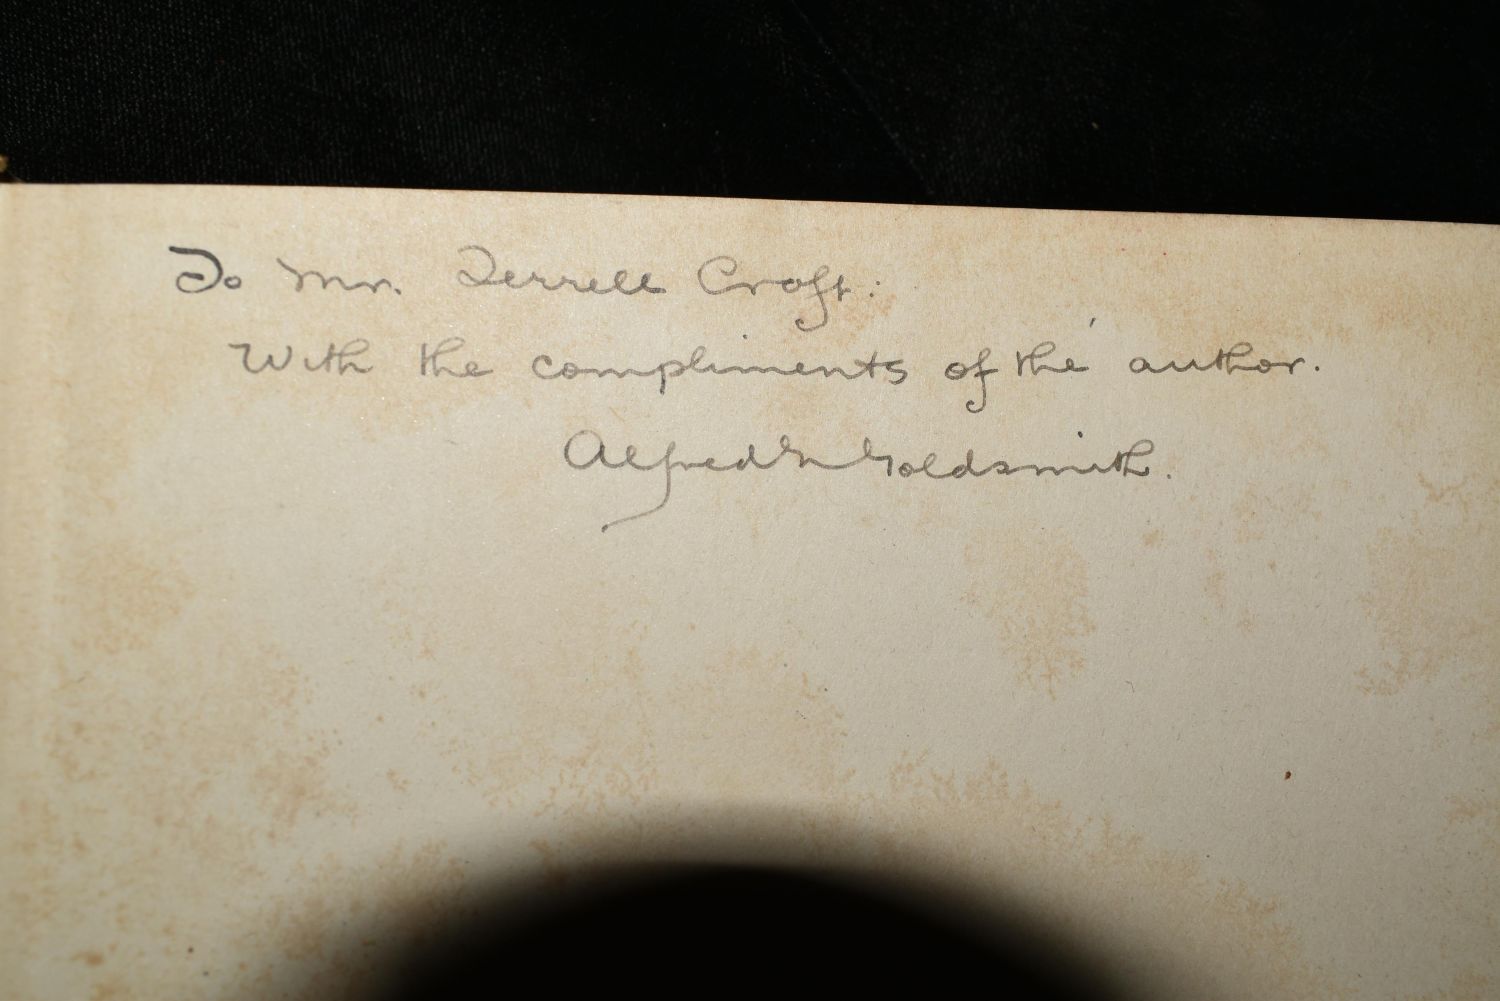 To Mr. Terrell Croft:
With the compliments of the author.
Alfred N Goldsmith.